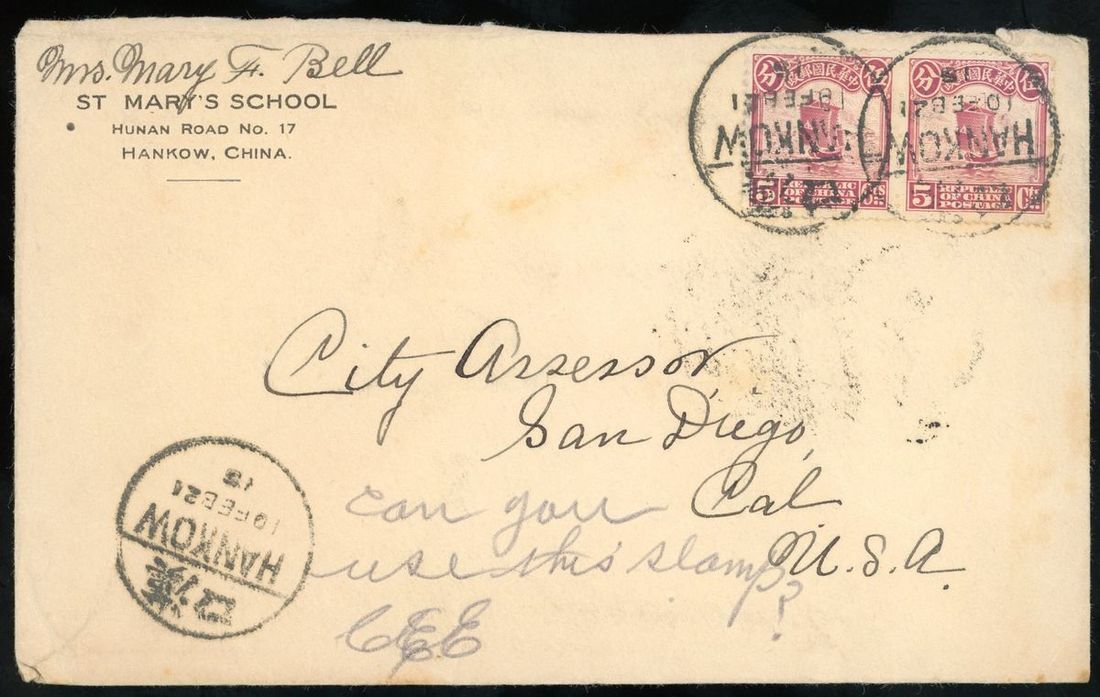 Mrs. Mary F. Bell
ST MARY'S SCHOOL
HUNAN ROAD No. 17
HANKOW, CHINA.
分 中華民國郵政 伍
5 REPUBLIC OF CHINA POSTAGE Cts
分 中華民國郵政 伍
5 REPUBLIC OF CHINA POSTAGE Cts
15
19 FEB 21
HANKOW
15
19 FEB 21
HANKOW
City Assessor,
San Diego,
Cal
U.S.A.
can you
use this stamp?
CEE
15
19 FEB 21
HANKOW
漢口